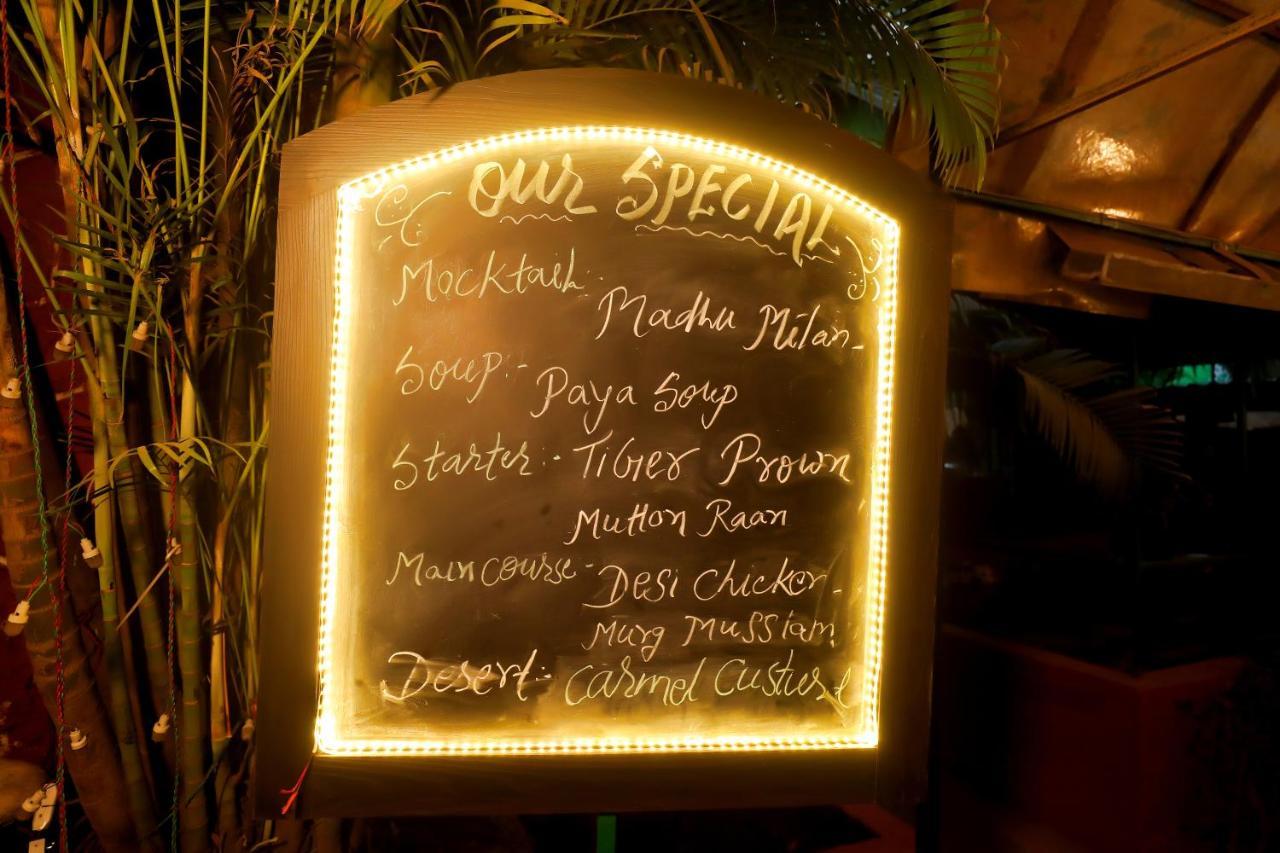 OUR SPECIAL
Mocktail:
Madhu Milan-
Soup:- Paya Soup
Starter:- TIGER Prown
Mutton Raan
Maincourse- DESI Chicken-
Murg Mussiam
Desert:- Carmel Custurd